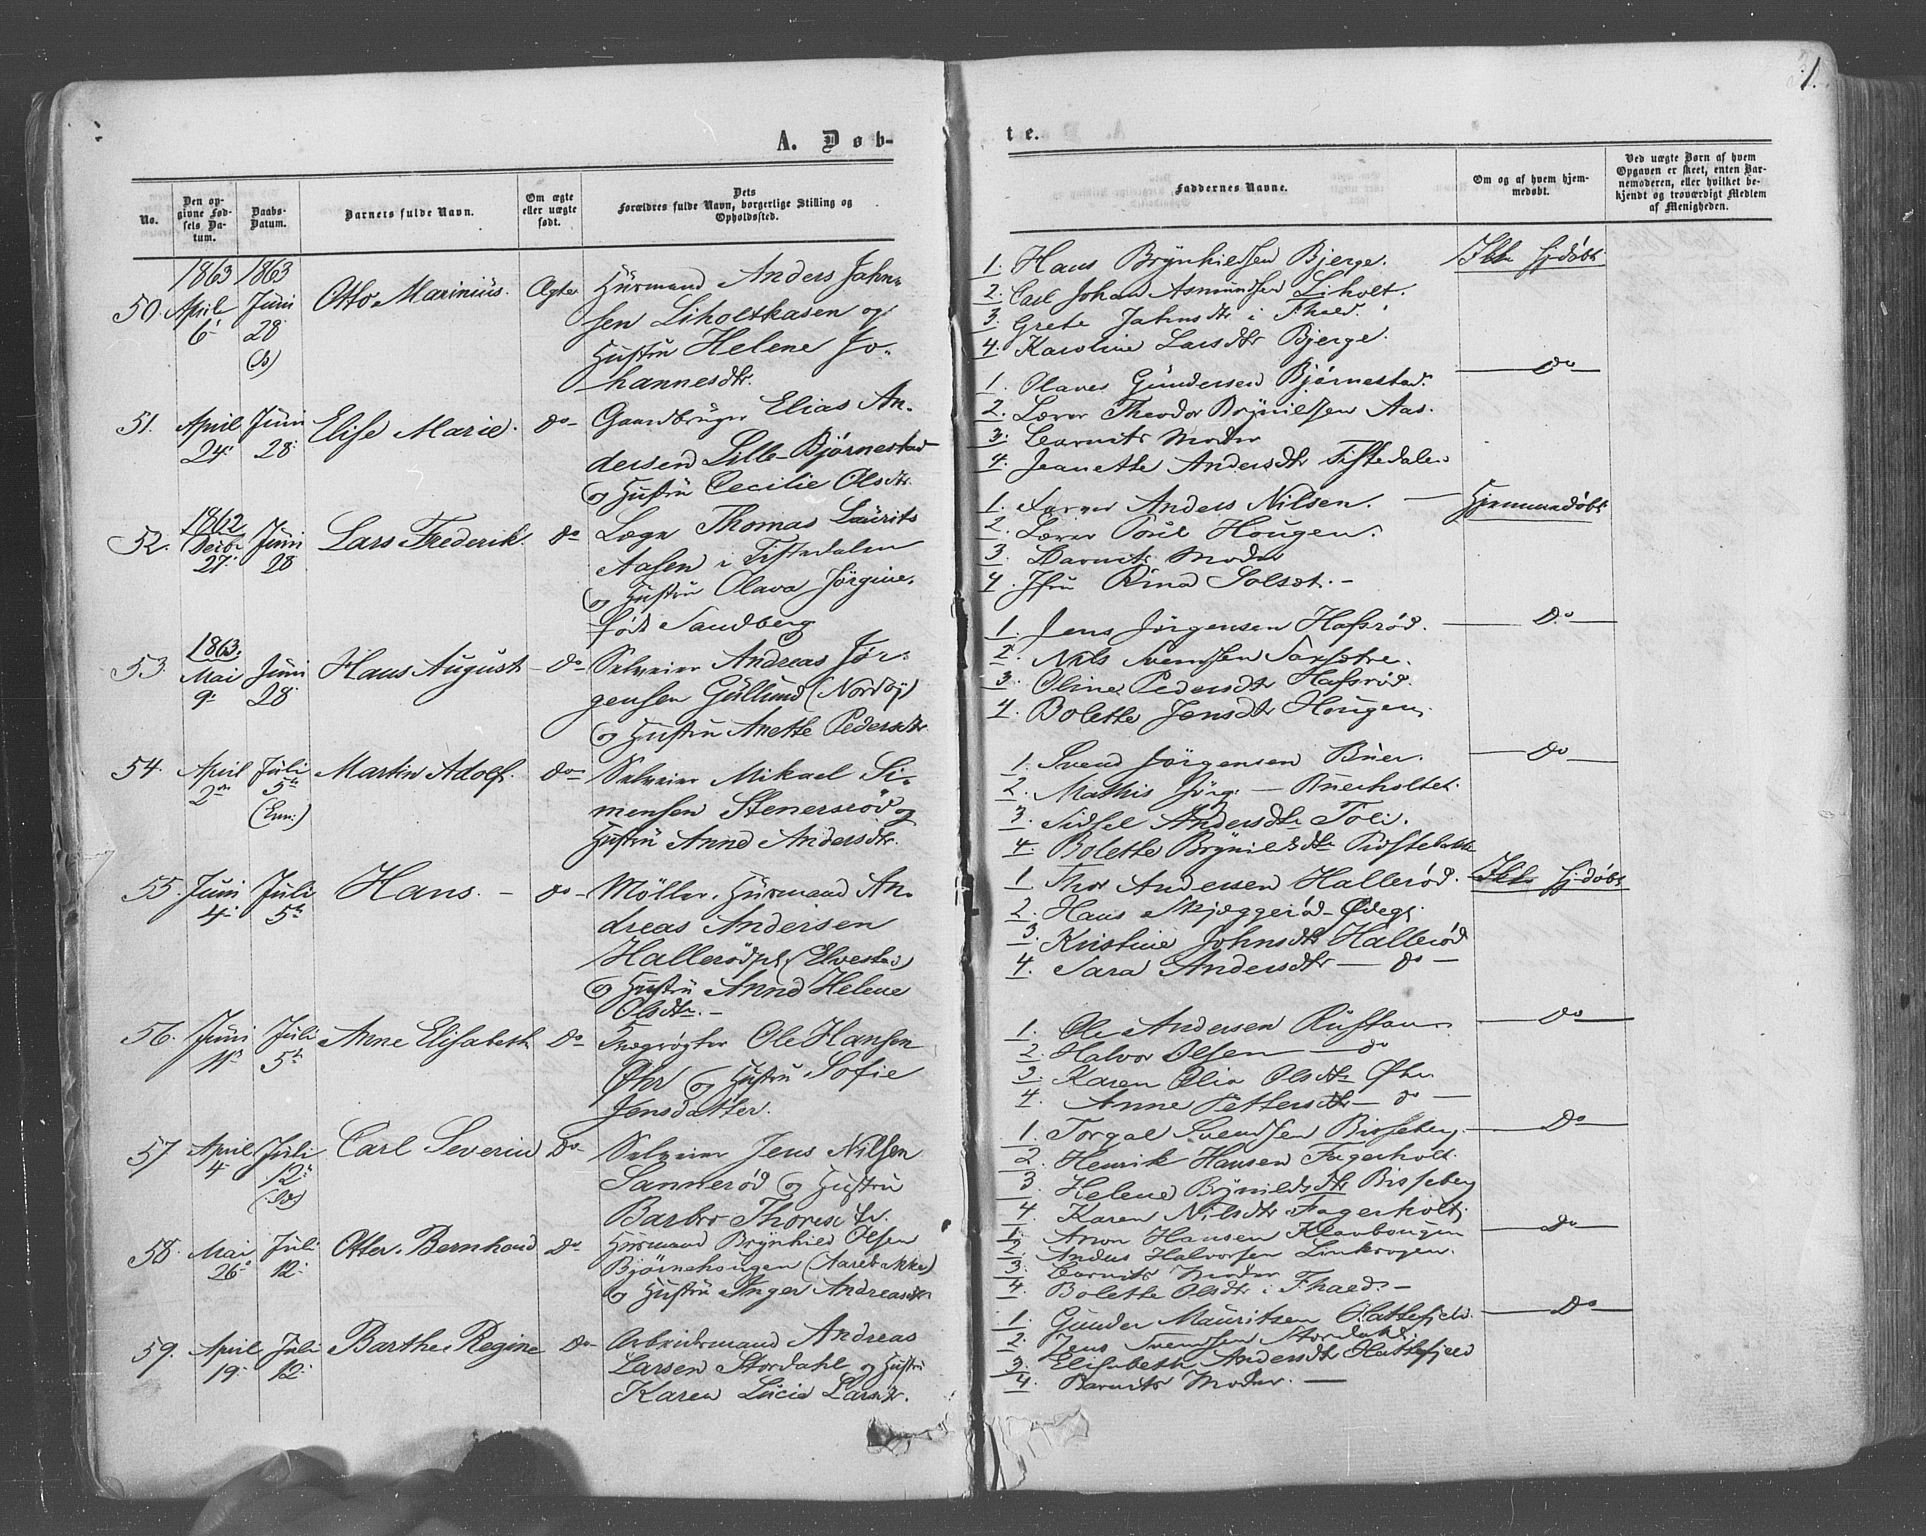 31.
A. Døb-
te.
No.
Den op-
givne Fød-
sels Da-
tum.
Daabs-
Datum.
Barnets fulde Navn.
Om ægte
eller uægte
født.
Dets
Forældres fulde Navn, borgerlige Stilling og
Opholdssted.
Faddernes Navne.
Om og af hvem hjem-
medøbt.
Ved uægte Børn af hvem
Opgaven er skeet, enten Bar-
nemoderen, eller hvilket be-
kjendt og troværdigt Medlem
af Menigheden.
1863 1863
50. April 6 Juni 28 (S) Otto Marinius. Ægte
Huusmand Anders Jahn-
sen Liholtkasen og
Hustru Helene Jo-
hannesdtr.
1. Hans Brynhildsen Bjerge. Ikke hjdøbt
2. Carl Johan Asmundsen Liholt.
3. Grete Jahnsdtr i Fhald.
4. Karoline Larsdtr Bjerge.
51. April 24. Juni 28. Elise Marie. Do
Gaardbruger Elias An-
dersen Lille-Bjørnestad
og Hustru Cecilie Olsdtr.
1. Olaves Gundersen Bjørnestad. Do
2. Lærer Theodor Brynildsen Aas.
3. Barnets Moder
4. Jeanette Andersdtr Tistedalen
52. 1862 Decbr 27. Juni 28 Lars Frederik. Do
Læge Thomas Laurits
Aasen i Tistedalen
og Hustru Olava Jørgine,
født Sandberg
1. Farver Anders Nilsen. Hjemmedøbt
2. Lærer Poul Hougen.
3. Barnets Moder
4. Jfru Rina Solset.
53. 1863. Mai 9. Juni 28. Hans August Do
Selveier Andreas Jør-
gensen Gullund (Nordby)
og Hustru Anette Pedersdtr
1. Jens Jørgensen Hafsrød. Do
2. Nils Svendsen
3. Oline Pedersdtr Hafsrød.
4. Bolette Jensdtr Hougen.
54. April 2den Juli 5te Martin Adolf. Do
Selveier Mikael Si-
mensen Stenersrød og
Hustru Anne Andersdtr.
1. Svend Jørgensen Buer. Do
2. Mathis Jørg: — Buerholtet.
3. Sidsel Andersdtr
4. Bolette Brynildsdtr
55. Juni 4. Juli 5te Hans. — do
Møller, Huusmand An-
dreas Andersen
Hallerødpl. (Elvestad)
og Hustru Anne Helene
Olsdtr. —
1. Thor Andersen Hallerød. Ikke hjdøbt
2. Hans Skjæggerød-Ødeg:
3. Kristine Johnsdtr Hallerød
4. Sara Andersdtr — do —
56. Juni 11te Juli 5te Anne Elisabeth Do
Fægrøgter Ole Hansen
Øhr og Hustru Sofie
Jensdatter.
1. Ole Andersen Do
2. Halvor Olsen — do
3. Karen Olia Olsdtr Øhr.
4. Anne Pettersdtr — do —
57. April 4. Juli 12. Carl Severin Do
Selveier Jens Nilsen
Sannerød og Hustru
Barbro Thoresdtr.
1. Torgal Svendsen Bisseberg. Do
2. Henrik Hansen Fagerholt.
3. Helene Brynildsdtr Bisseberg
4. Karen Nilsdtr Fagerholt.
58. Mai 26. Juli 12. Otter Bernhard Do
Huusmand Brynhild Olsen
Bjørnehougen (Aarebakke)
og Hustru Inger Andreasdtr
1. Aron Hansen Do
2. Anders Halvorsen
3. Barnets Moder
4. Bolette Olsdtr i Fhald. —
59. April 19. Juli 12. Barthe Regine Do
Arbeidsmand Andreas
Larsen Stordahl og Hustru
Karen Lucie Larsdtr.
1. Gunder Mauritsen Hattefjeld. Do
2. Jens Svendsen Stordahl.
3. Elisabeth Andersdtr Hattefjeld
4. Barnets Moder. —